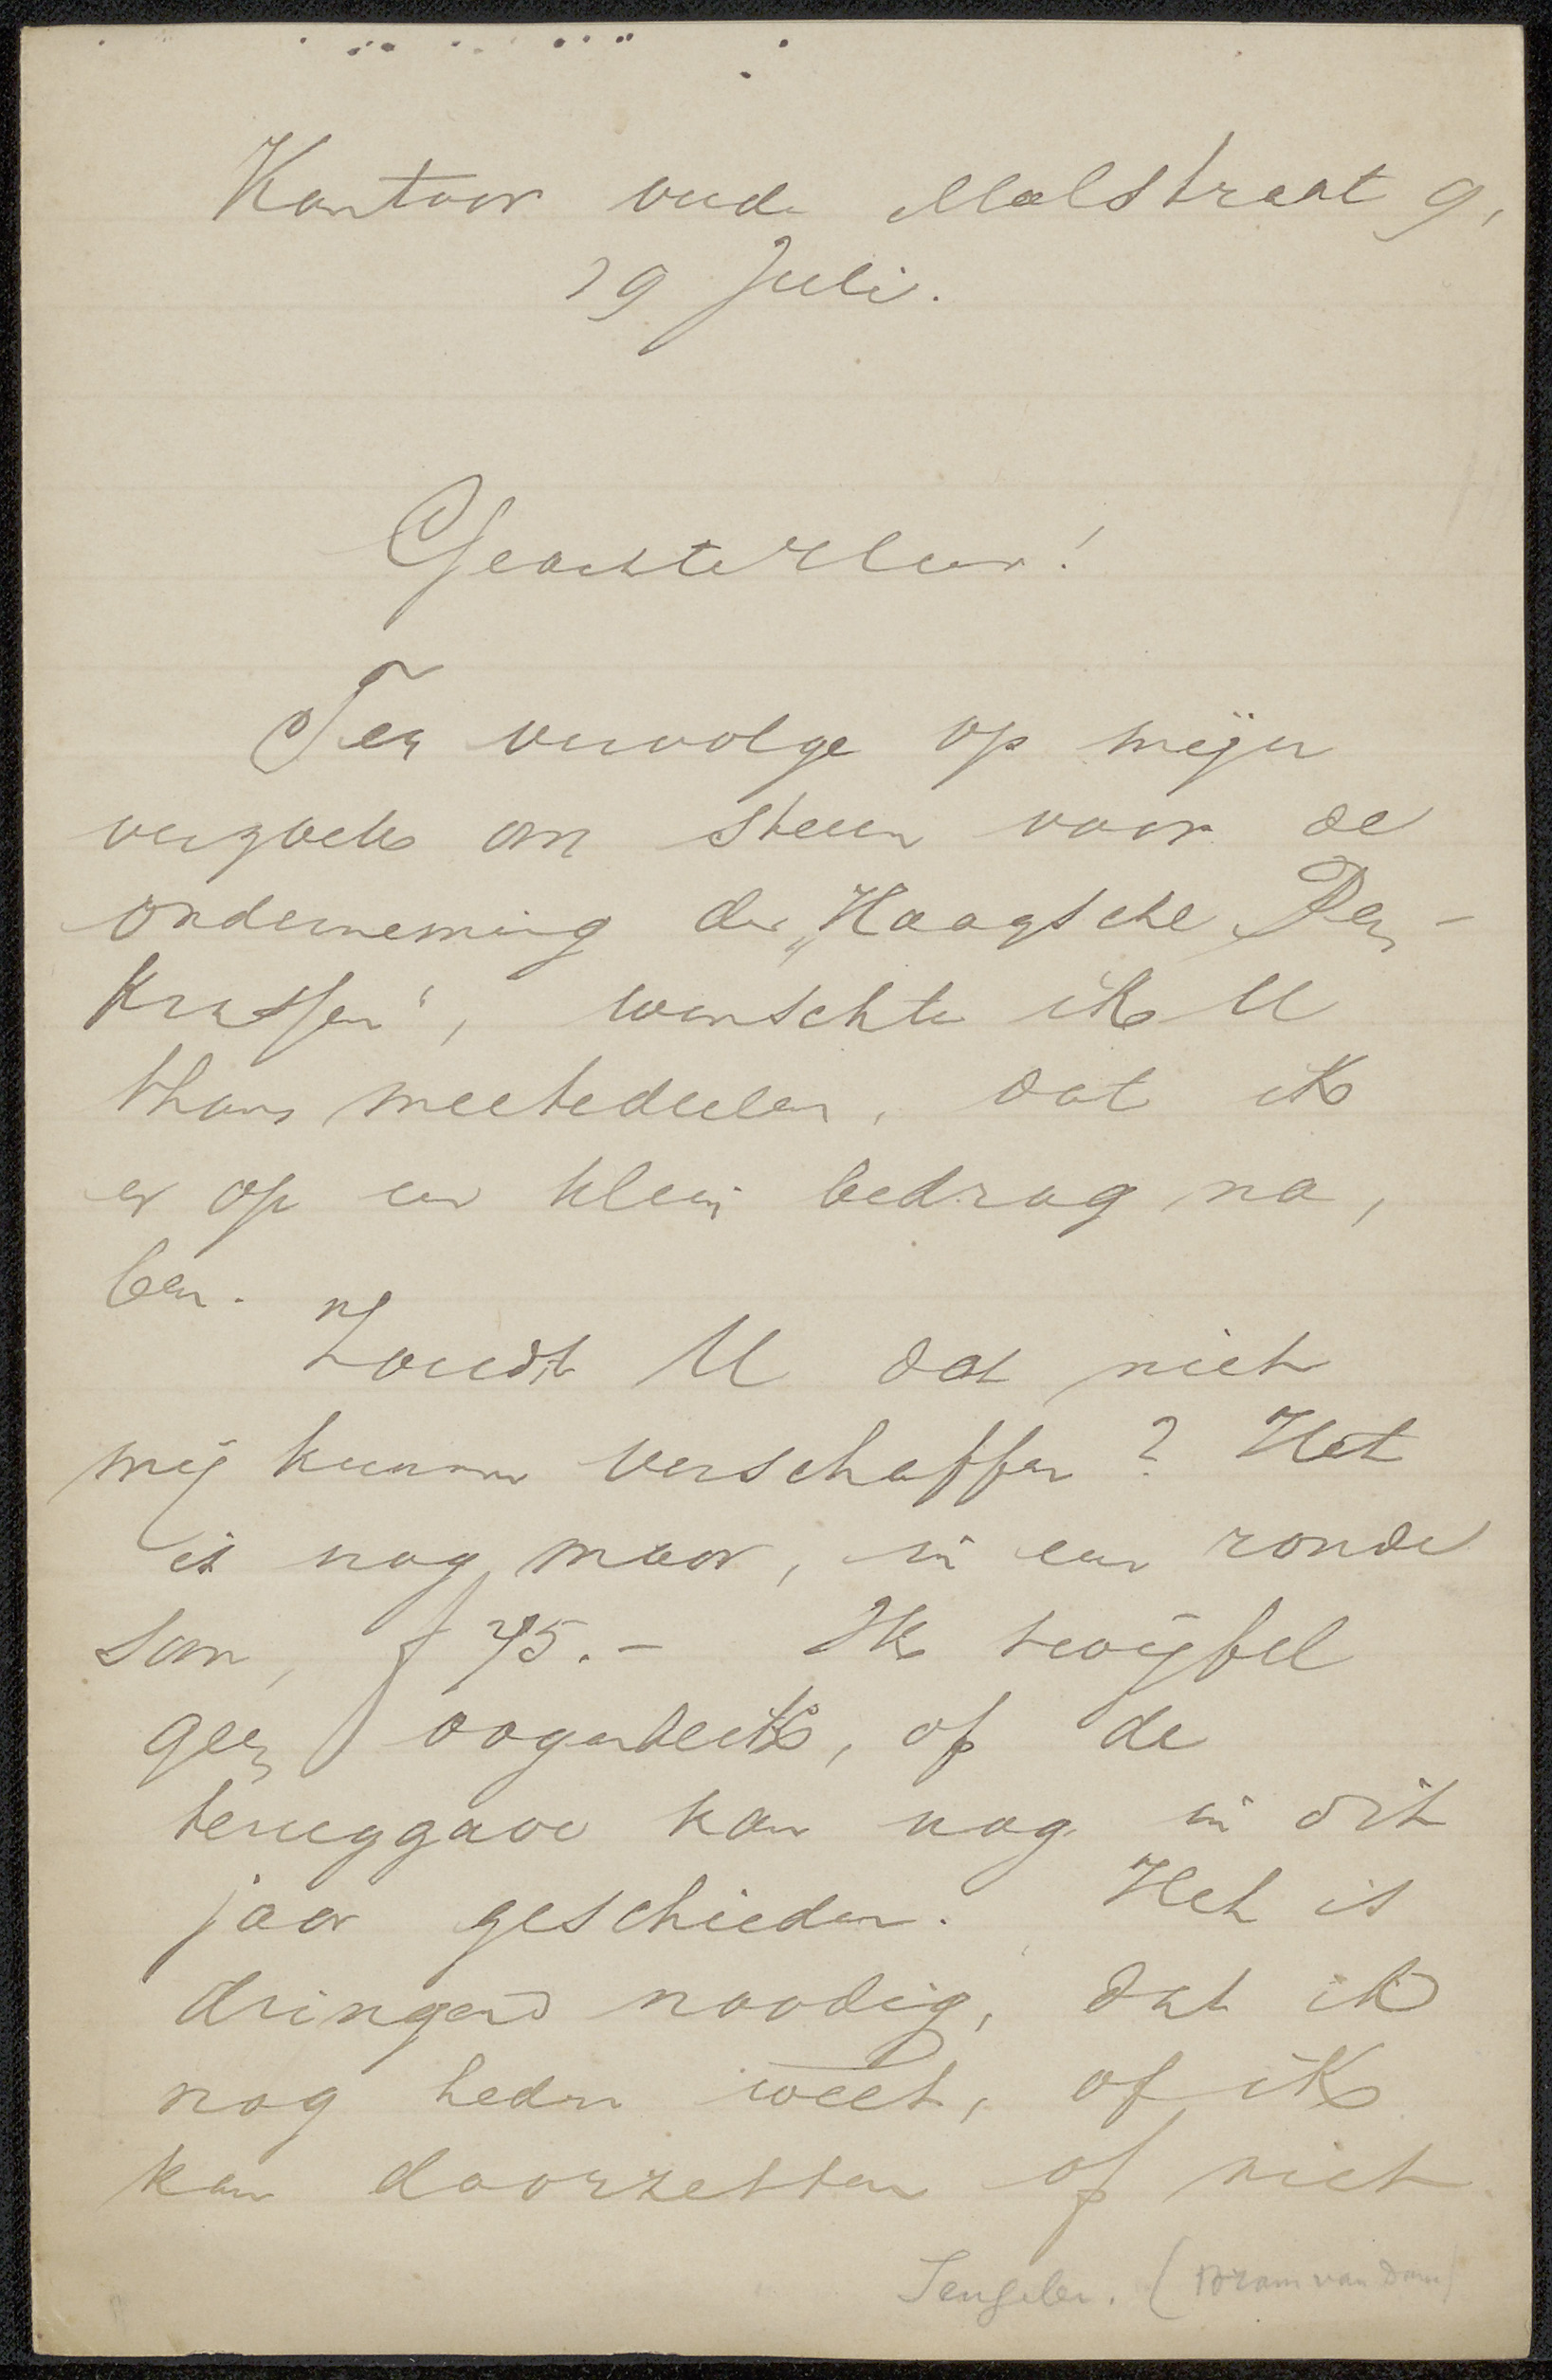 Kantoor oude Molstraat 9,
19 Juli.
Geachte Heer!
Ten vervolge op mijn
verzoek om steun voor de
onderneming der „Haagsche Pen-
krassen“, wenschte ik U
thans meetedeelen, dat ik
er op een klein bedrag na,
ben.
Zoudt U dat niet
mij kunnen verschaffen? Het
is nog maar, in een ronde
som, f 75.- Ik twijfel
geen oogenblik, of de
teruggave kan nog in dit
jaar geschieden. Het is
dringend noodig, dat ik
nog heden weet, of ik
kan doorzetten of niet.
(Bram van Dam)